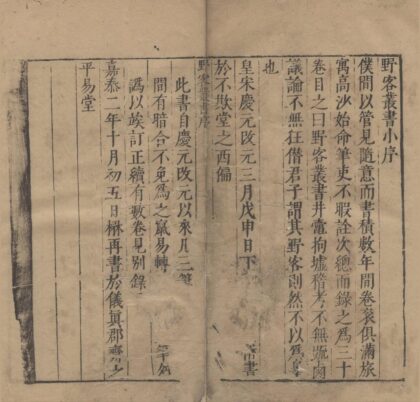 野客叢書小序
僕間以管見隨意而書積數年間卷袠俱滿旅
寓高沙始命筆吏不暇詮次總而錄之為三十
卷目之曰野客叢書井鼃拘墟稽考不無疏鹵
議論不無狂僣君子謂其野客則然不以為
也
皇宋慶元改元三月戊申日下
書
於不欺堂之西偏
野客叢書序
此書自慶元改元以來凡三筆
間有暗合不免為之竄易轉
筆
譌以俟訂正續有數卷見別錄
嘉泰二年十月初五日楙再書於儀真郡齋之
平易堂